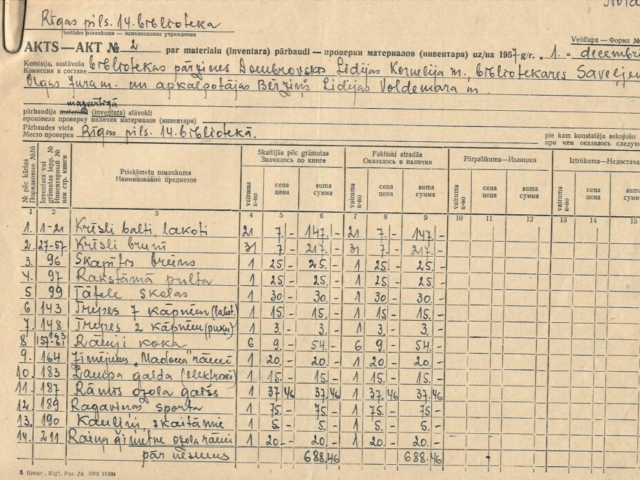 Rīgas pils. 14. bibliotēka
AKTS — АКТ № 2 par materialu (inventara) pārbaudi — проверки материалов (инвентаря) uz/на 1957 g/г. "1. decembri
Komisija, sastāvošā bibliotēkas pārzines Dombrovskas Lidijas Kornēlija m., bibliotekares
Комиссия в составе
Olgas Jura m. un apkalpotājas Bērziņš Lidijas Voldemāra m.
mazvērtīgā
pārbaudīja (inventara) stāvokli
произвела проверку наличия материалов (инвентаря)
Pārbaudes vieta Rīgas pils. 14. bibliotēkā.
Место проверки
pie kam konstatēja sekojošo:
при чем оказалось
№ pēc kārtas Порядковые №№
Priekšmetu nosaukums
Наименование предметов
Skaitījās pēc grāmatas
Значилось по книге
Faktiski atradās
Оказалось в наличии
Pārpalikums—Излишки
Iztrūkums—Недостача
vairums к-во cena цена suma сумма vairums к-во cena цена suma сумма vairums к-во cena цена suma сумма vairums к-во cena цена suma сумма
1 2 3 4 5 6 7 8 9 10 11 12 13 14 15
1. 1-21 Krēsli balti, lakoti 21 7.- 147.- 21 7.- 147.-
2. 27-57 Krēsli brūni 31 7.- 217.- 31 7.- 217.-
3. 96 Skapītis brūns 1 25.- 25.- 1 25.- 25.-
4. 97 Rakstāmā pulta 1 25.- 25.- 1 25.- 25.-
5 99 Tāfele skolas 1 30.- 30.- 1 30.- 30.-
6 143 Trepes 7 kāpnēm 1 15.- 15.- 1 15.- 15.-
7. 148 Trepes 2 kāpnēm 1 3.- 3.- 1 3.- 3.-
8 Rāmji koka 6 9.- 54.- 6 9.- 54.-
9. 164 Zīmējums "Madona" rāmī 1 20.- 20.- 1 20.- 20.-
10. 183 Lampa galda 1 15.- 15.- 1 15.- 15.-
11. 187 Rāmis ozola garš 1 37.46 37.46 1 37.46 37.46
12. 189 Ragaviņas sporta 1 75.- 75.- 1 75.- 75.-
13. 190 Kauliņi skaitāmie 1 5.- 5.- 1 5.- 5.-
14. 211 Raiņa ģīmetne ozola rāmī 1 20.- 20.- 1 20.- 20.-
688.46 688.46